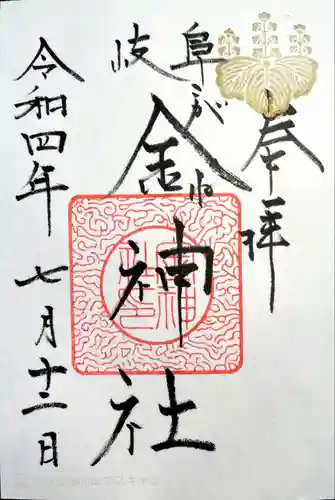 奉拝
岐阜
こがね
金神社
令和四年七月十二日